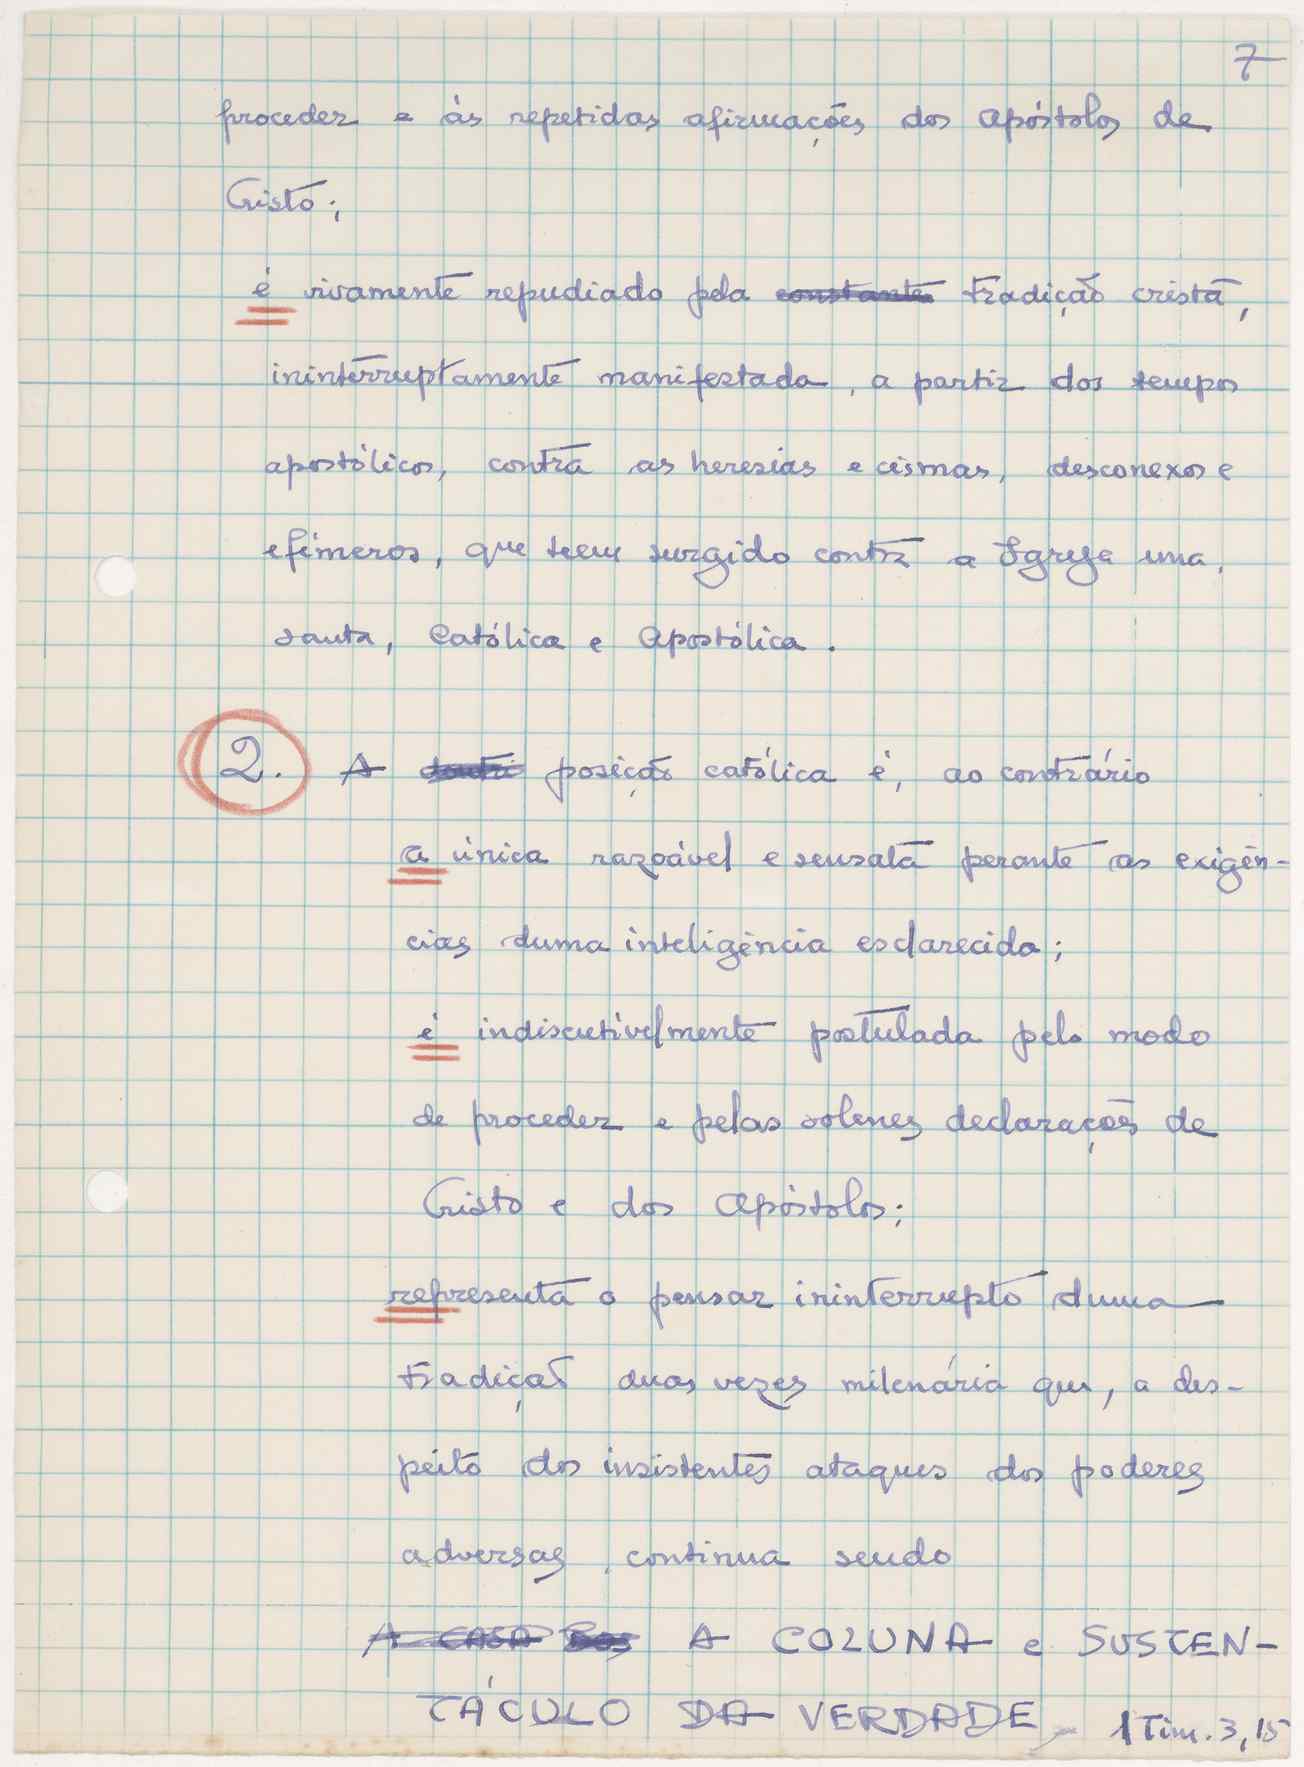 7
proceder e às repetidas afirmações dos Apóstolos de
Cristo;
é vivamente repudiado pela constante tradição cristã,
ininterruptamente manifestada, a partir dos tempos
apostólicos, contra as heresias e cismas, desconexos e
efémeros, que teem surgido contra a Igreja una,
santa, Católica e Apostólica.
2. A posição católica é, ao contrário
a única razoável e sensata perante as exigên-
cias duma inteligência esclarecida;
é indiscutivelmente postulada pelo modo
de proceder e pelas solenes declarações de
Cristo e dos Apóstolos;
representa o pensar ininterrupto duma
tradição duas vezes milenária que, a des-
peito dos insistentes ataques dos poderes
adversas, continua sendo
A CASA A COLUNA e SUSTEN-
TÁCULO DA VERDADE 1 Tim. 3,15